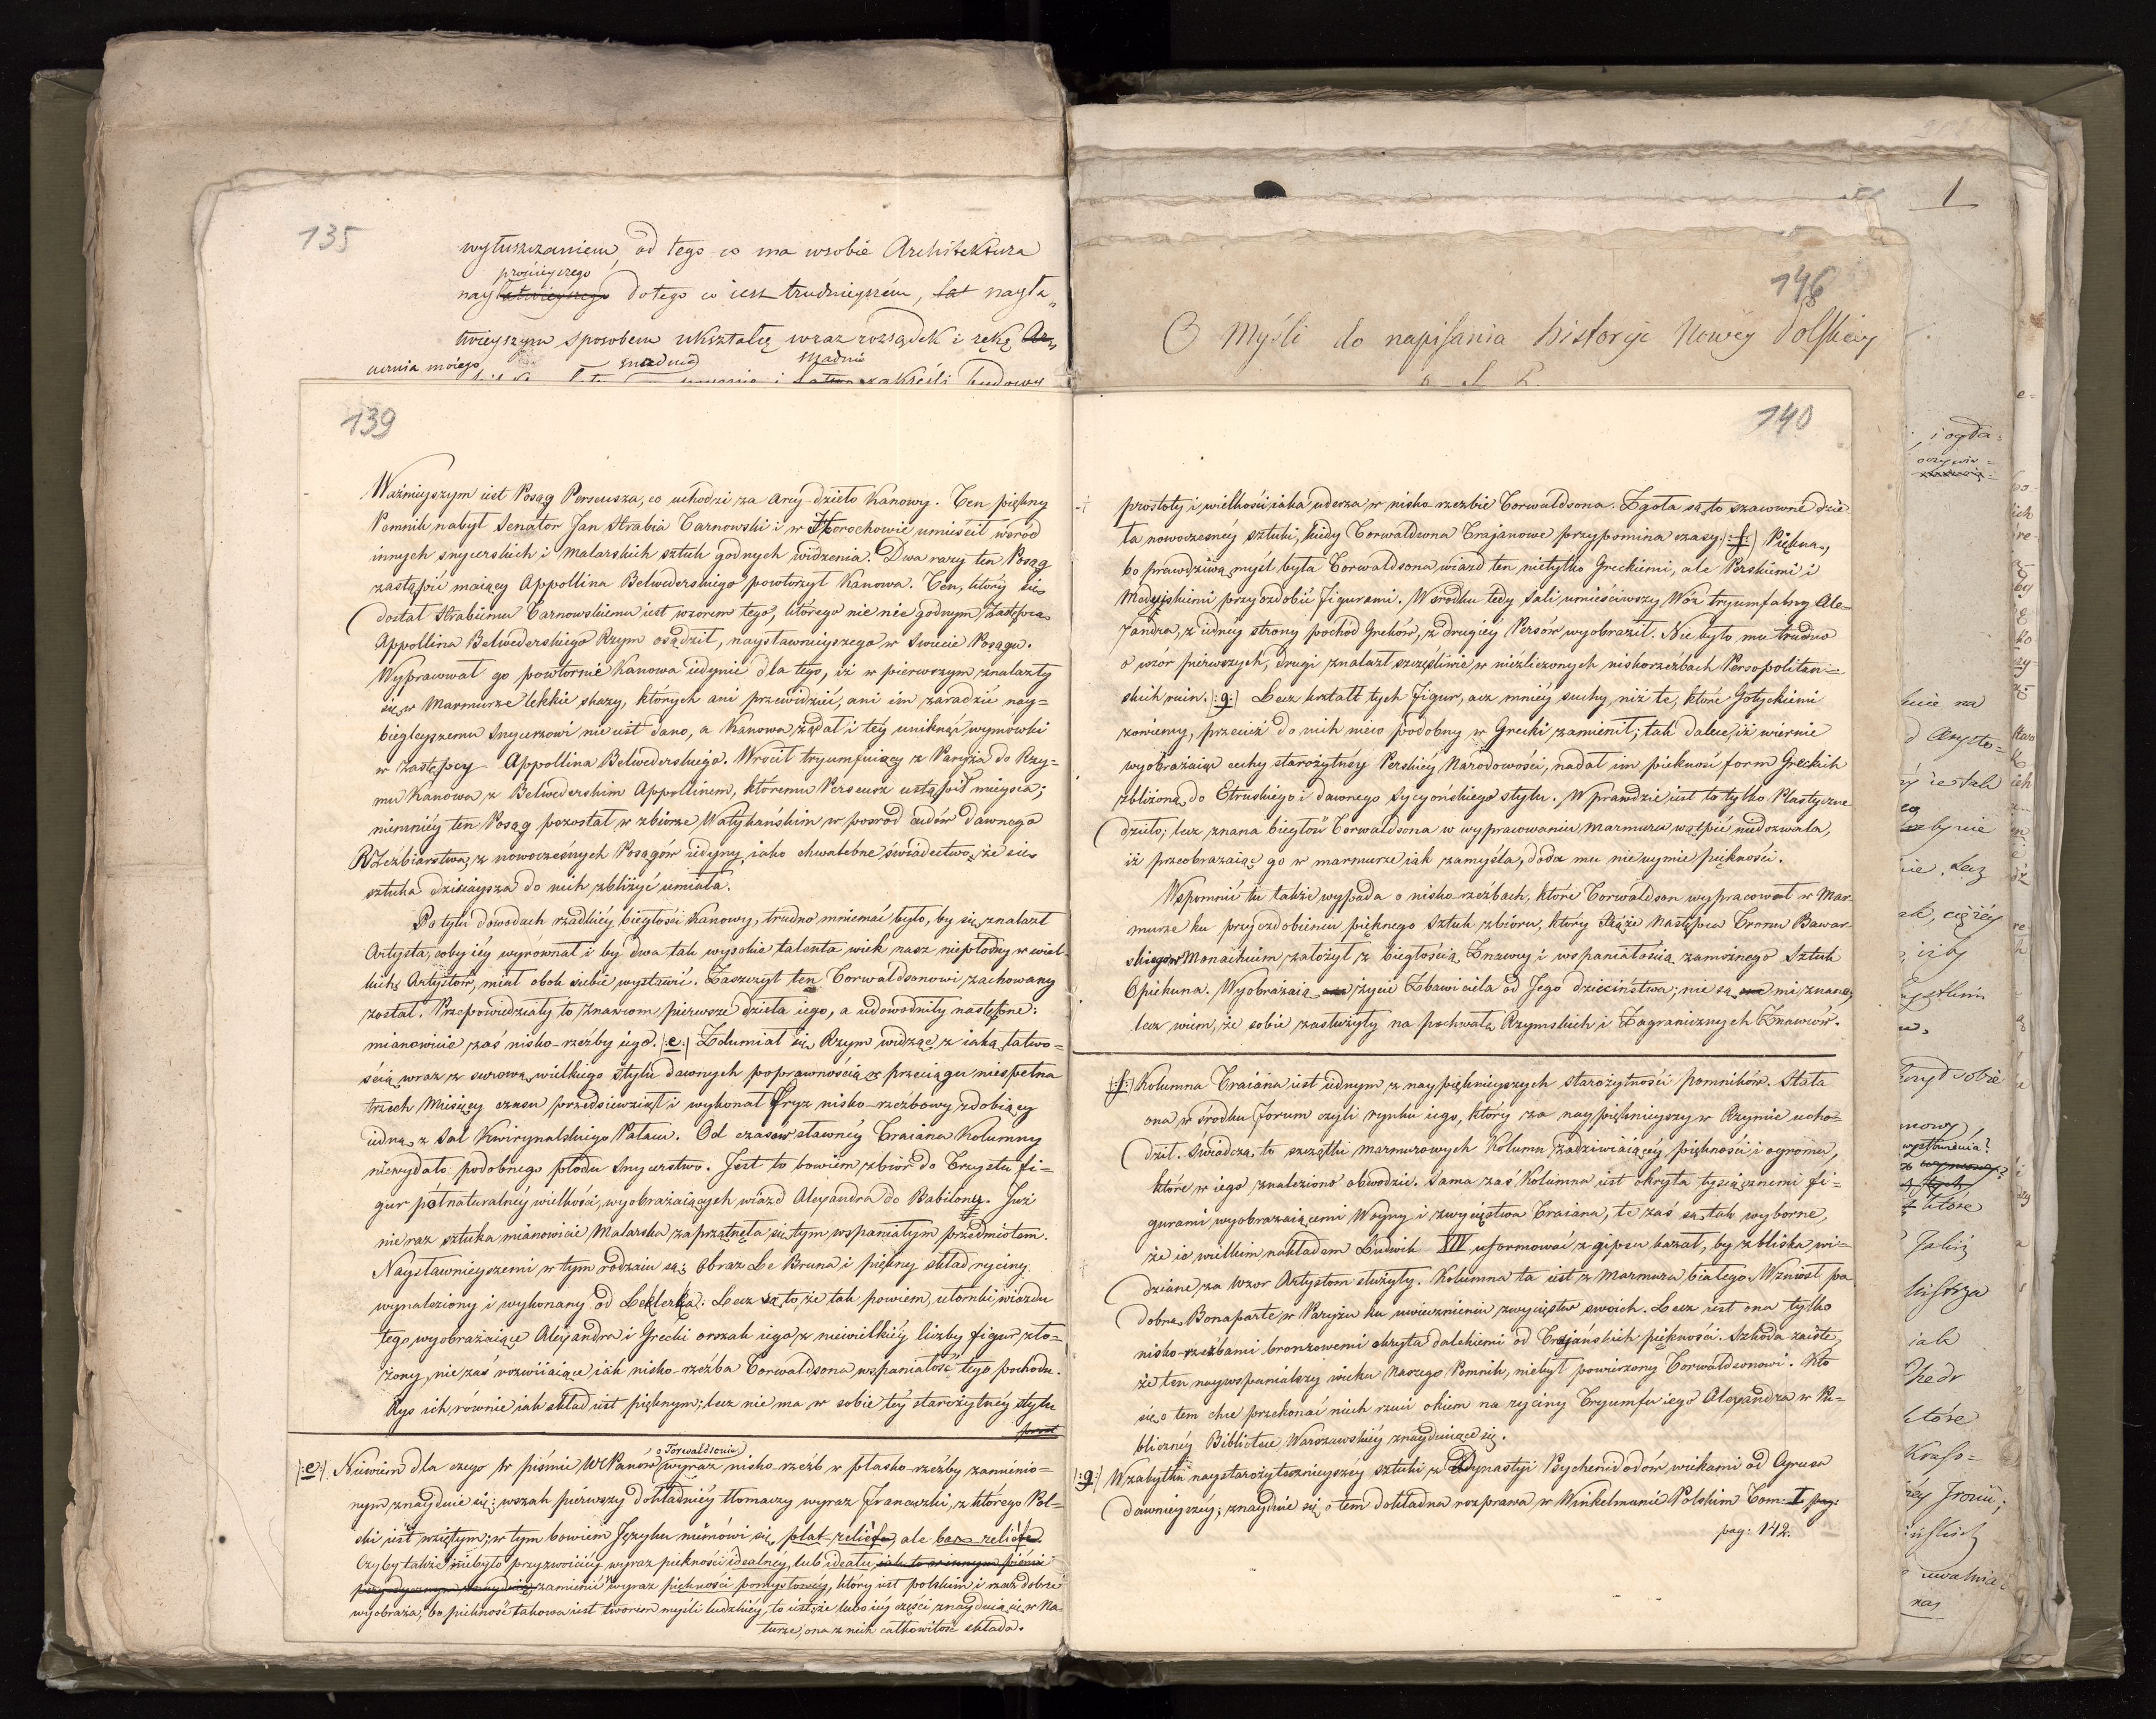 135
wyłuszczaniem, od tego co ma wsobie Architektura
prościeyszego
nay łatwieyszego do tego co iest trudnieyszém, tat nayła„
twieyszym sposobem ukształcę wraz rozsądek i rękę Ar„
ucznia moiego
snadniey
snadnie
zakréśli budowy
139
Ważnieyszym iest Posąg Perseusza, co uchodzi za arcy-dzieło Kanowy. Ten piękny
Pomnik nabył Senator Jan Hrabia Tarnowski i w Horochowie umieścił wsród
innych snycerskich i Malarskich sztuk godnych widzenia. Dwa razy ten Posąg
zastąpić maiący Appollina Belwederskiego powtorzył Kanowa. Ten, który się
dostał Hrabiemu Tarnowskiemu iest wzorem tego, którego nie nie godnym Zastępcą
Appollina Belwederskiego Rzym osądził, naysławnieyszego w Swiecie Posągu.
Wypracował go powtornie Kanowa iedynie dla tego, iż w pierwszym znalazły
się w Marmurze lekkie skazy, których ani przewidzić, ani im zaradzić nay=
biegleyszemu Snycerzowi nie iest dano, a Kanowa żądał i téy uniknąć wymówki
w Zastępcy Appollina Belwederskiego. Wrócił tryumfuiący z Paryża do Rzy=
mu Kanowa z Belwederskim Appollinem, któremu Perseusz ustąpił mieysca;
niemniéy ten Posąg pozostał w zbiorze Watykańskim w posrod cudów dawnego
RZeźbiarstwa, z nowoczesnych Posągów iedyny, iako chwalebne świadectwo, że się
sztuka dzisieysza do nich zbliżyć umiała.
Po tylu dowodach rzadkiéy biegłości Kanowy, trudno mniemać było, by się znalazł
Artysta, coby iéy wyrównał i by dwa tak wysokie talenta wiek nasz niepłodny w wiel-
kich Artystów, miał obok siebie wystawić. Zaszczyt ten Torwaldsonowi zachowany
został. Przepowiedziały to Znawcom pierwsze dzieła iego, a udowodniły następne:
mianowicie zaś nisko-rzeźby iego. |:e:| Zdumiał się Rzym widząc z iaką łatwo=
ścią wraz z surową wielkiego stylu dawnych poprawnością z przeciągu niespełna
trzech Miesięcy czasu przedsiewziął i wykonał Fryz nisko-rzeźbowy zdobiący
iedną z Sal Kwirynalskiego Pałacu. Od czasów sławnéy Traiana Kolumny
niewydało podobnego płodu Snycerstwo. Jest to bowiem zbiór do Trzystu fi=
gur półnaturalnéy wielkości, wyobrażaiących wiazd Alexandra do Babilony. Już
nie raz sztuka mianowicie Malarska zaprzątnęła się tym wspaniałym przedmiotem.
Naysławnieyszemi w tym rodzaiu są: Obraz Le Bruna i piękny skład ryciny
wynaleziony i wykonany od Leklerka. Lecz są to, że tak powiem, ułomki wiazdu
tego, wyobrażaiące Alexandra i Grecki orszak iego z niewielkiéy liczby figur zło=
żony, nie zaś rozwiiaiące iak nisko-rzeźba Torwaldsona wspaniałość tego pochodu.
Rys ich, równie iak skład iest pięknym; lecz nie ma w sobie téy starożytnéy stylu
prost
o Torwaldsonie
|:e:| Niewiem dla czego w piśmie WPanow wyraz nisko-rzeźb w płasko-rzeźby zamienio=
nym znayduie się; wszak pierwszy dokładniéy tłomaczy wyraz Francuzki, z którego Pol=
ski iest wziętym; w tym bowiem Języku niemówi się plat-reliefe, ale bas-reliefe.
Czyby także niebyło przyzwoiciéy wyraz piękności idealney, lub ideału, iak to w innym piśmie
peryodycznym znayduię, zamienić w wyraz piękności pomysłowéy, który iest polskim i rzecz dobrze
wyobraża, bo piękność takowa iest tworem myśli ludzkiéy, to iest, że lubo iéy części znayduią się w Na=
turze, ona z nich całkowitość składa.
1
146
O Myśli do napisania historyi Nowéy Polskiéy
140
prostoty i wielkości iaka uderza w nisko-rzeźbie Torwaldsona. Zgoła są to szacowne dzie=
ła nowoczesnéy sztuki, kiedy Torwaldsona Trajanowe przypomina czasy. |:f:| Piękną,
bo prawdziwą myśl była Torwaldsona wiazd ten nietylko Greckiemi, ale Perskiemi i
Medyjskiemi przyozdobić figurami. W środku tedy Sali umieściwszy Wóz tryumfalny Ale=
xandra, z iednéy strony pochod Greków, z drugiéy Persów wyobraził. Nie było mu trudno
o wzór pierwszych, drugi znalazł szczęśliwie w niezliczonych niskorzeźbach Persopolitan=
skich ruin. |:g:| Lecz kształt tych figur, acz mniéy suchy niż te, które Gotyckiemi
zowiemy, przecież do nich nieco podobny w Grecki zamienił; tak dalece, iż wiernie
wyobrażaiąc cechy starożytnéy Perskiéy Narodowości, nadał im piękność form Greckich
zbliżoną do Etruskiego i dawnego Sycyońskiego stylu. Wprawdzie iest to tylko Plastyczne
dzieło; lecz znana biegłość Torwaldsona w wypracowaniu marmuru wątpić niedozwala,
iż przeobrażaiąc go w marmurze iak zamyśla, doda mu nie uymie piękności.
Wspomnić tu także wypada o nisko-rzeźbach, które Torwaldson wypracował w Mar=
murze ku przyozdobieniu pięknego Sztuk zbioru, który Xiąże Następca Tronu Bawar=
skiego w Monachium założył z biegłością Znawcy i wspaniałością zamożnego Sztuk
Opiekuna. Wyobrażaią one życie Zbawiciela od Jego dzieciństwa; nie są one mi znane,
lecz wiem, że sobie zasłużyły na pochwałę Rzymskich i Zagranicznych Znawców.
|:f:| Kolumna Traiana iest iednym z naypięknieyszych starożytności pomników. Stała
ona w środku Forum czyli rynku iego, który za naypięknieyszy w Rzymie ucho=
dził. Swiadczą to szczątki marmurowych Kolumn zadziwiaiącéy piękności i ogromu,
które w iego znaleziono obwodzie. Sama zaś Kolumna iest okryta tysiącznemi fi=
gurami wyobrażaiącemi Woyny i zwycięstwa Traiana, te zaś są tak wyborne,
że ie wielkim nakładem Ludwik XIV uformować z gipsu kazał, by z bliska wi=
dziane za wzor Artystom służyły. Kolumna ta iest z Marmuru białego. Wzniosł po
dobną Bonaparte w Paryżu ku uwiecznieniu zwycięstw swoich. Lecz iest ona tylko
nisko-rzeźbami bronzowemi okryta dalekiemi od Trajańskich piękności. Szkoda zaiste,
że ten naywspanialszy wieku Naszego Pomnik, niebył powierzony Torwaldsonowi. Kto
się o tem chce przekonać niech rzuci okiem na ryciny Tryumfu iego Alexandra w Pu=
blicznéy Bibliotece Warszawskiéy znayduiące się.
|:g:| W zabytku naystarożytnieyszey sztuki z Dynastyi Psychenidodów wiekami od Cyrusa
dawnieyszéy; znayduie się o tem dokładna rozprawa w Winkelmanie Polskim Tom I pag:
pag: 142.
i ogła=
oczywis=
na
d Arysto=
że tak
by nie
nie. Lecz
ak, ciężéy
iżby
sobie
nowy
wysłowienia?
które
iak
które
Krass=
uwalnia
nas